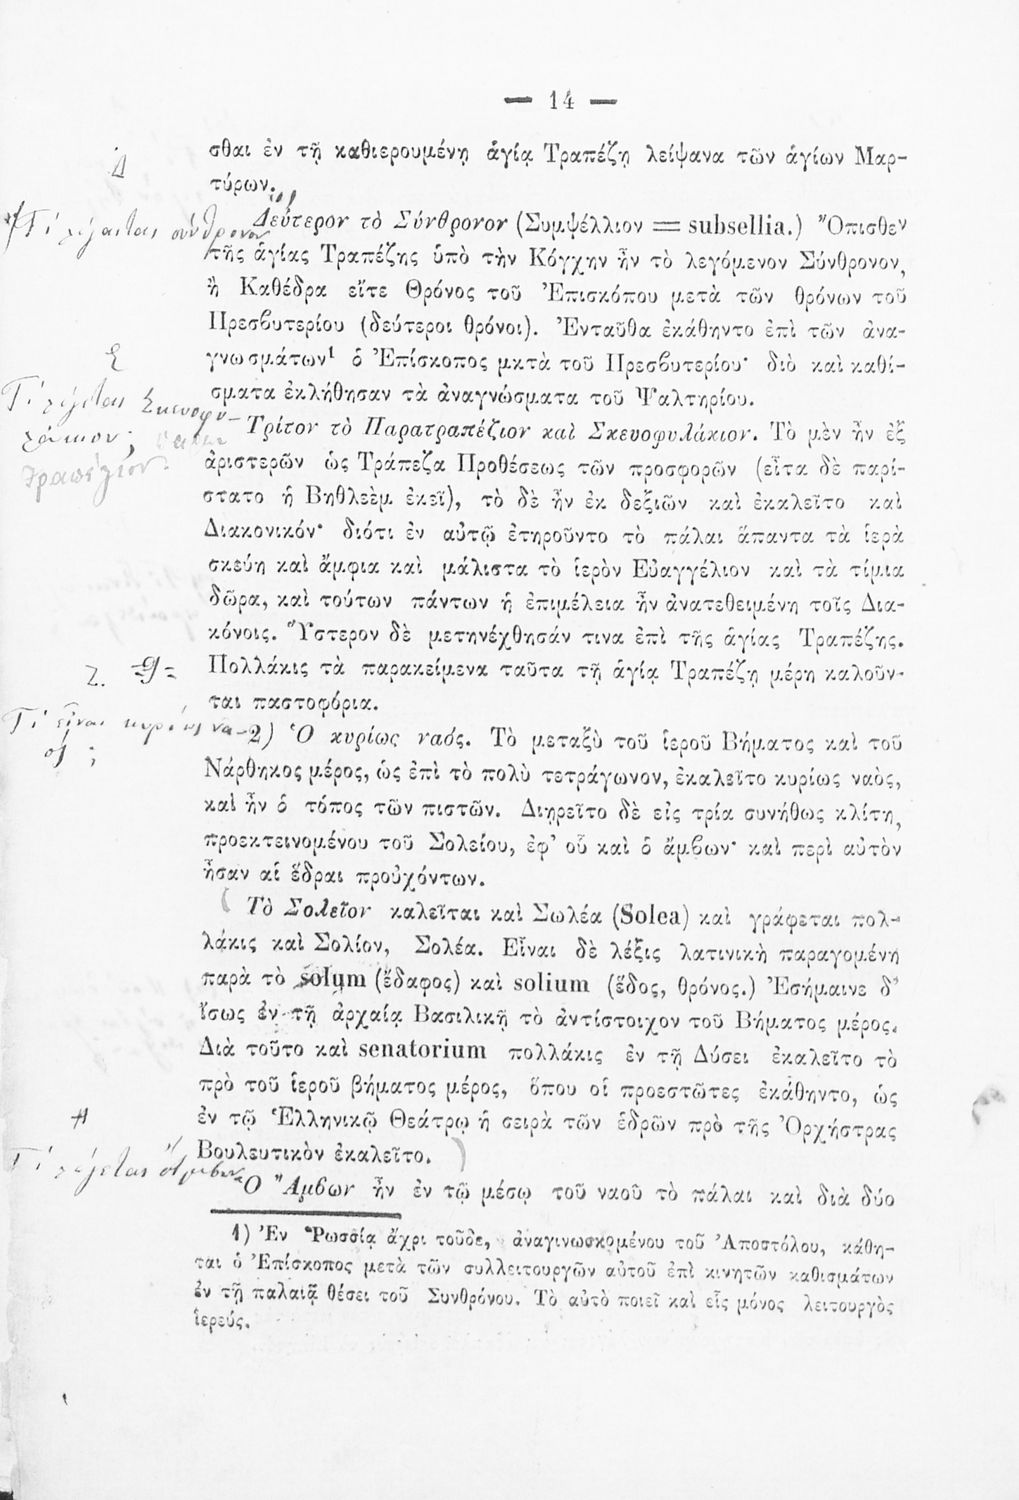 — 14 —
σθαι ἐν τῇ καθιερουμένῃ ἁγίᾳ Τραπέζῃ λείψανα τῶν ἁγίων Μαρ-
τύρων.
Δ
Τί λέγεται σύνθρονον
Δεύτερον τὸ Σύνθρονον (Συμψέλλιον = subsellia.) Ὄπισθεν
τῆς ἁγίας Τραπέζης ὑπὸ τὴν Κόγχην ἦν τὸ λεγόμενον Σύνθρονον,
ἢ Καθέδρα εἴτε Θρόνος τοῦ Ἐπισκόπου μετὰ τῶν θρόνων τοῦ
Πρεσβυτερίου (δεύτεροι θρόνοι). Ἐνταῦθα ἐκάθηντο ἐπὶ τῶν ἀνα-
γνωσμάτων¹ ὁ Ἐπίσκοπος μκτὰ τοῦ Πρεσβυτερίου· διὸ καὶ καθί-
σματα ἐκλήθησαν τὰ ἀναγνώσματα τοῦ Ψαλτηρίου.
Τί λέγεται Σκευοφυ-
λάκιον;
τραπέζιον
Τρίτον τὸ Παρατραπέζιον καὶ Σκευοφυλάκιον. Τὸ μὲν ἦν ἐξ
ἀριστερῶν ὡς Τράπεζα Προθέσεως τῶν προσφορῶν (εἶτα δὲ παρί-
στατο ἡ Βηθλεὲμ ἐκεῖ), τὸ δὲ ἦν ἐκ δεξιῶν καὶ ἐκαλεῖτο καὶ
Διακονικόν· διότι ἐν αὐτῷ ἐτηροῦντο τὸ πάλαι ἅπαντα τὰ ἱερὰ
σκεύη καὶ ἄμφια καὶ μάλιστα τὸ ἱερὸν Εὐαγγέλιον καὶ τὰ τίμια
δῶρα, καὶ τούτων πάντων ἡ ἐπιμέλεια ἦν ἀνατεθειμένη τοῖς Δια-
κόνοις. Ὕστερον δὲ μετηνέχθησάν τινα ἐπὶ τῆς ἁγίας Τραπέζης.
Πολλάκις τὰ παρακείμενα ταῦτα τῇ ἁγίᾳ Τραπέζῃ μέρη καλοῦν-
ται παστοφόρια.
Ζ. -9-
Τί εἶναι κυρίως να-
ός;
2) Ὁ κυρίως ναός. Τὸ μεταξὺ τοῦ ἱεροῦ Βήματος καὶ τοῦ
Νάρθηκος μέρος, ὡς ἐπὶ τὸ πολὺ τετράγωνον, ἐκαλεῖτο κυρίως ναὸς,
καὶ ἦν ὁ τόπος τῶν πιστῶν. Διῃρεῖτο δὲ εἰς τρία συνήθως κλίτη,
προεκτεινομένου τοῦ Σολείου, ἐφ’ οὗ καὶ ὁ ἄμβων· καὶ περὶ αὐτὸν
ἦσαν αἱ ἕδραι προὐχόντων.
Τὸ Σολεῖον καλεῖται καὶ Σωλέα (Solea) καὶ γράφεται πολ-
λάκις καὶ Σολίον, Σολέα. Εἶναι δὲ λέξις λατινικὴ παραγομένη
παρὰ τὸ solum (ἔδαφος) καὶ solium (ἕδος, θρόνος.) Ἐσήμαινε δ’
ἴσως ἐν τῇ ἀρχαίᾳ Βασιλικῇ τὸ ἀντίστοιχον τοῦ Βήματος μέρος.
Διὰ τοῦτο καὶ senatorium πολλάκις ἐν τῇ Δύσει ἐκαλεῖτο τὸ
πρὸ τοῦ ἱεροῦ βήματος μέρος, ὅπου οἱ προεστῶτες ἐκάθηντο, ὡς
ἐν τῷ Ἑλληνικῷ Θεάτρῳ ἡ σειρὰ τῶν ἑδρῶν πρὸ τῆς Ὀρχήστρας
Βουλευτικὸν ἐκαλεῖτο.
Η
Τί λέγεται ἄμβων
Ὁ Ἄμβων ἦν ἐν τῷ μέσῳ τοῦ ναοῦ τὸ πάλαι καὶ διὰ δύο
1) Ἐν Ῥωσσίᾳ ἄχρι τοῦδε, ἀναγινωσκομένου τοῦ Ἀποστόλου, κάθη-
ται ὁ Ἐπίσκοπος μετὰ τῶν συλλειτουργῶν αὐτοῦ ἐπὶ κινητῶν καθισμάτων
ἐν τῇ παλαιᾷ θέσει τοῦ Συνθρόνου. Τὸ αὐτὸ ποιεῖ καὶ εἷς μόνος λειτουργὸς
ἱερεύς.